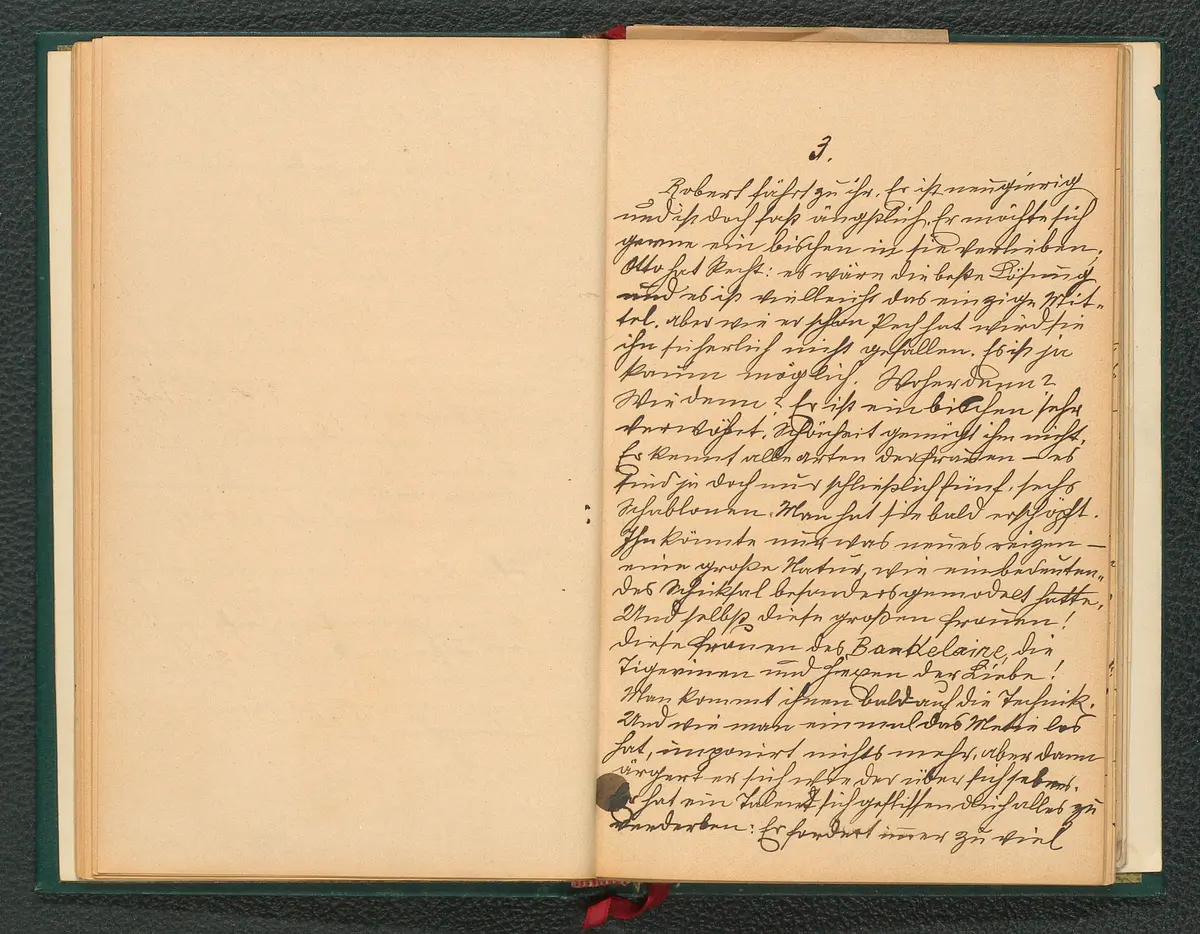 3.
Robert fährt zu ihr. Er ist neugierig
und ist doch fast ängstlich. Er möchte sich
gerne ein bischen in sie verlieben.
Otto hat Recht: es wäre die beste Lösung
und es ist vielleicht das einzige Mit-
tel. aber wie er schon Pech hat wird sie
ihn sicherlich nicht gefallen. Es ist ja
kaum möglich. Woher denn?
Wie denn? Er ist ein bischen sehr
verwöhnt. Schönheit genügt ihm nicht.
Er kennt alle arten der Frauen – es
sind ja doch nur schließlich fünf, sechs
Schablonen. Man hat sie bald erschöpft.
Ihn könnte nur was neues reizen –
eine große Natur, wie ein bedeuten-
des Schicksal besonders gemodelt hatte.
Und selbst diese großen Frauen!
diese Frauen des Baudelaire, die
Tigerinen und Hexen der Liebe!
Man kommt ihnen bald auf die Technik.
Und wie man einmal das Metie los
hat, imponirt nichts mehr. aber dann
ärgert er sich wieder über sich selber.
Er hat ein Talent sich geflissendlich alles zu
verderben: Er fordert immer zu viel